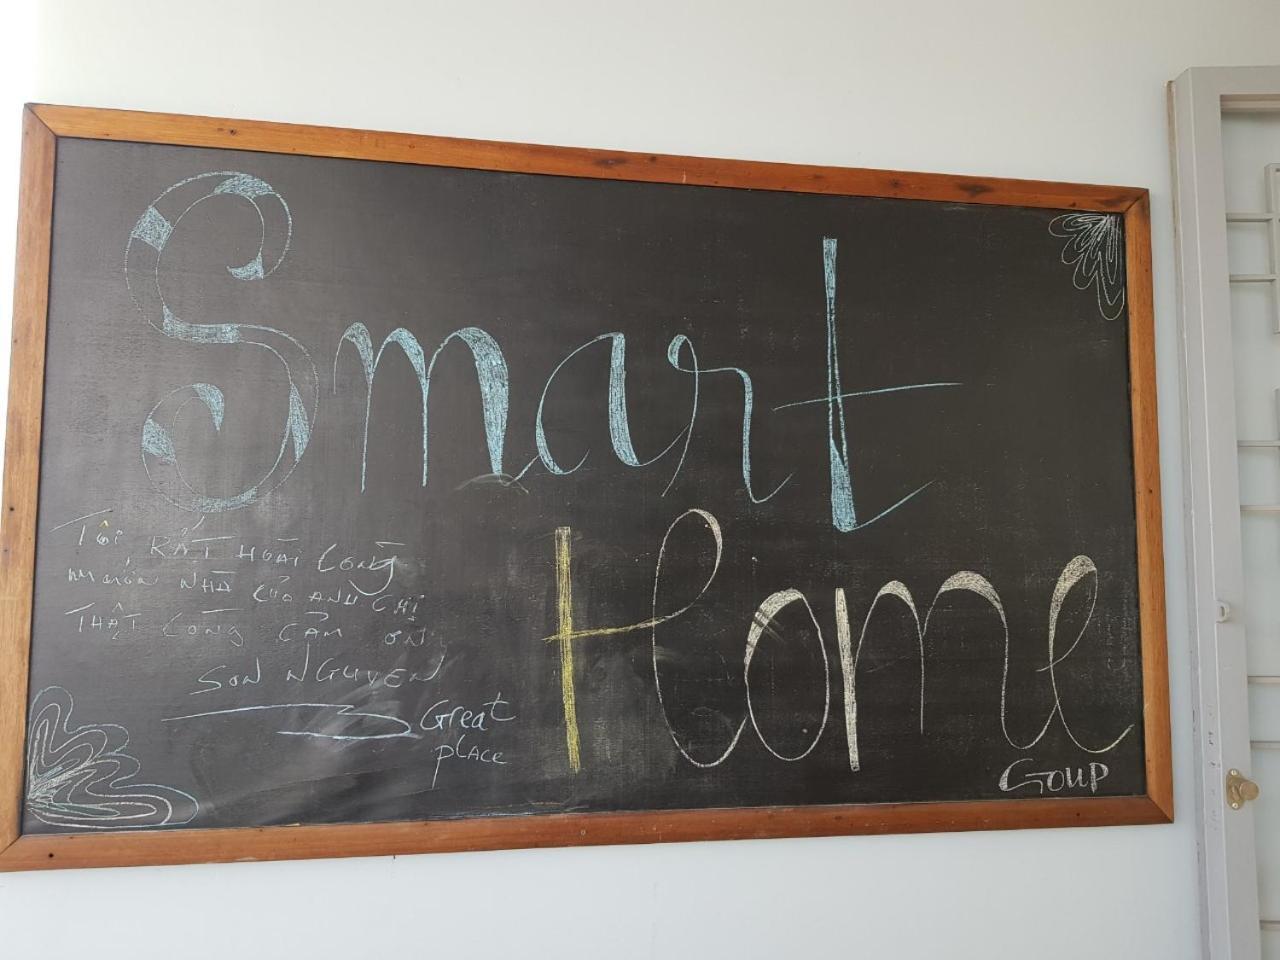 Smart
Home
GOUP
Tôi RẤT HOÀI LÒNG
muốn NHÀ CỦA ANH CHỊ
THẬT LÒNG CẢM ƠN
SON NGUYEN
Great
place